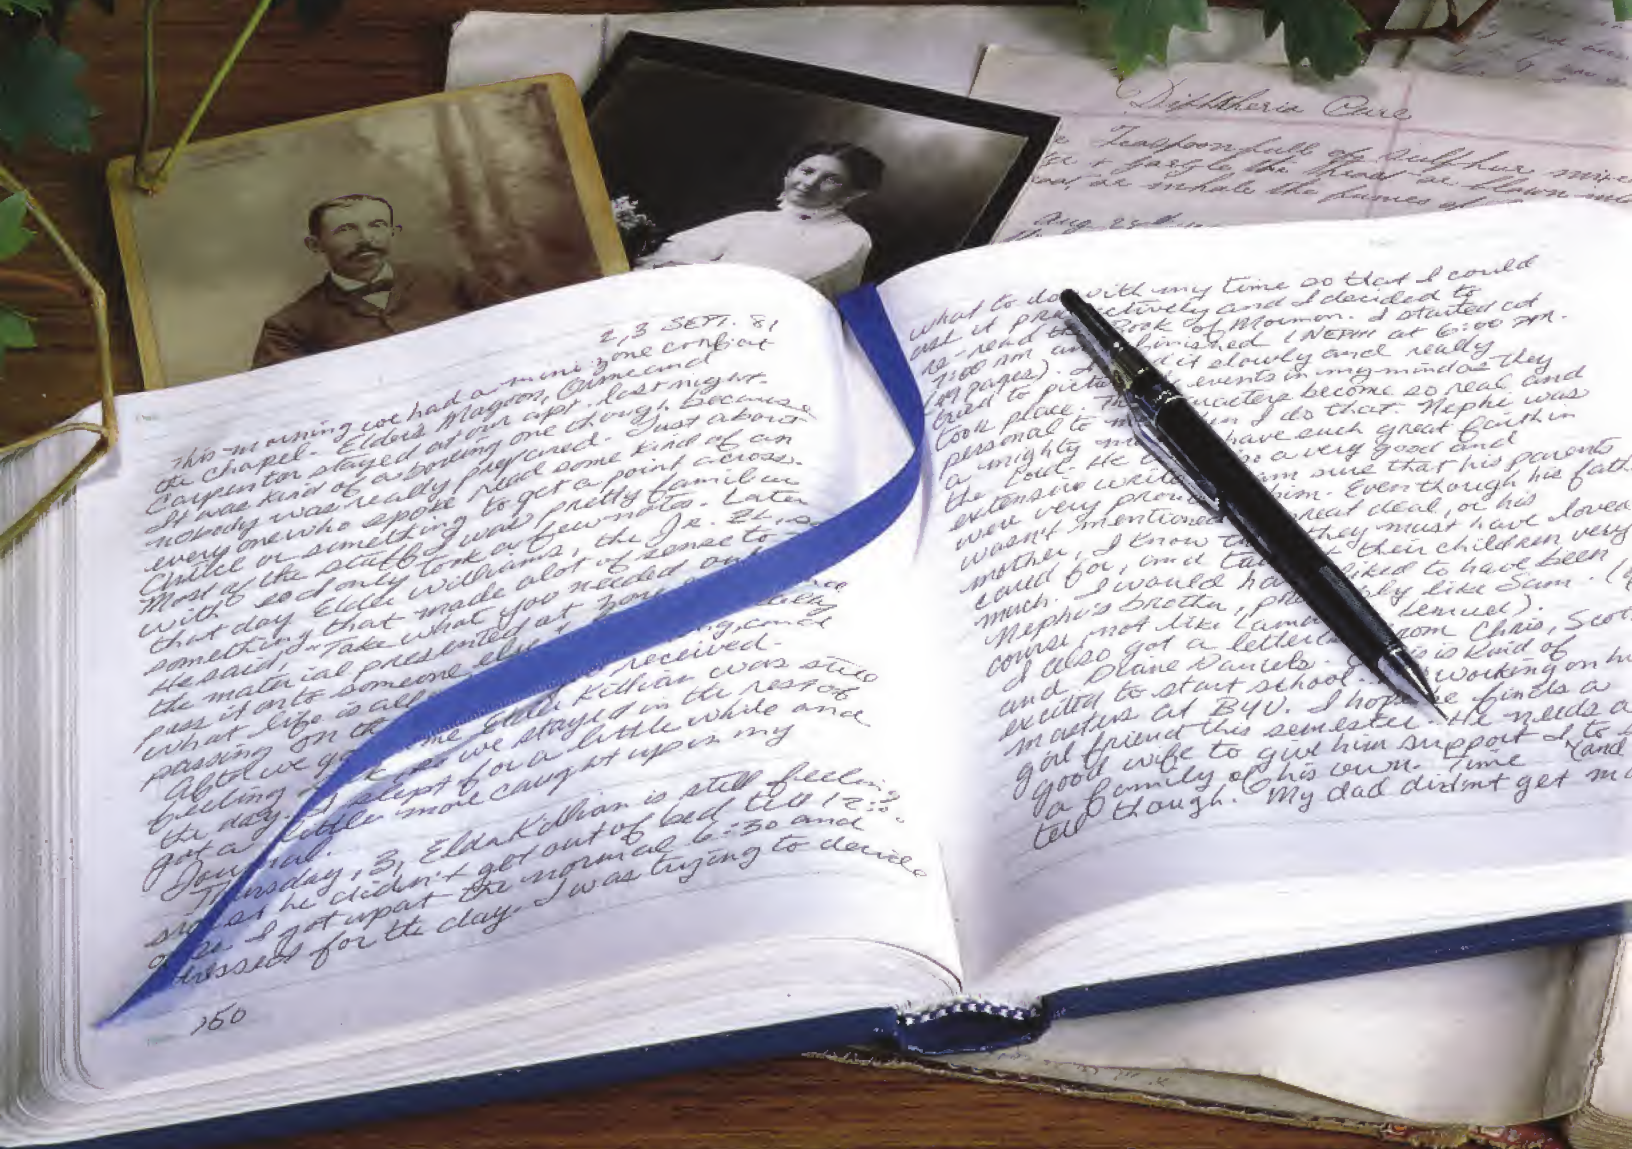 Diphtheria Cure
Teaspoonfull of Sulphur mixed
& gargle the throat or blown into
or inhale the fumes of
Aug
2,3 SEPT. 81
This morning we had a mini-zone conf. at
the chapel. Elders Magoon, Orme and
Carpenter stayed at our apt. last night.
It was kind of a boring one though, because
nobody was really prepared. Just about
everyone who spoke read some kind of an
or something to get a point across.
Most of the stuff I was pretty familiar
with so I only took a few notes. Later
that day Elder Williams, the Jr. ZL, said
something that made alot of sense to
He said, "Take what you needed out
the material presented at zone
pass it on to someone else
what life is all
passing on th received.
After we g me Elder Killian was still
feeling so we stayed in the rest of
the day. I slept for a little while and
got a little more caught up in my
Journal.
Thursday, 3, Elder Killian is still feeling
so he didn't get out of bed till 12:
I got up at the normal 6:30 and
dressed for the day. I was trying to decide
150
what to do with my time so that I could
use it productively and I decided to
re-read the Book of Mormon. I started at
7:00 AM and finished 1 NEPHI at 6:00 PM.
pages). I it slowly and really
tried to pictu events in my mind as they
took place. The characters become so real and
personal to me when I do that. Nephi was
a mighty m have such great faith in
the Lord. He a very good and
extensive write am sure that his parents
were very proud him. Even though his fath
wasn't mentioned great deal, or his
mother, I know they must have loved
cared for, and tau their children very
much. I would ha liked to have been
Nephi's brother, probably like Sam. (of
course not like Laman Lemuel).
I also got a letter from Chris, Scot
and Diane Daniels. is kind of
excited to start school. working on hi
masters at BYU. I hope he finds a
girl friend this semester. He needs a
good wife to give him support & to
a family of his own. Time (and
tell though. My dad didn't get ma